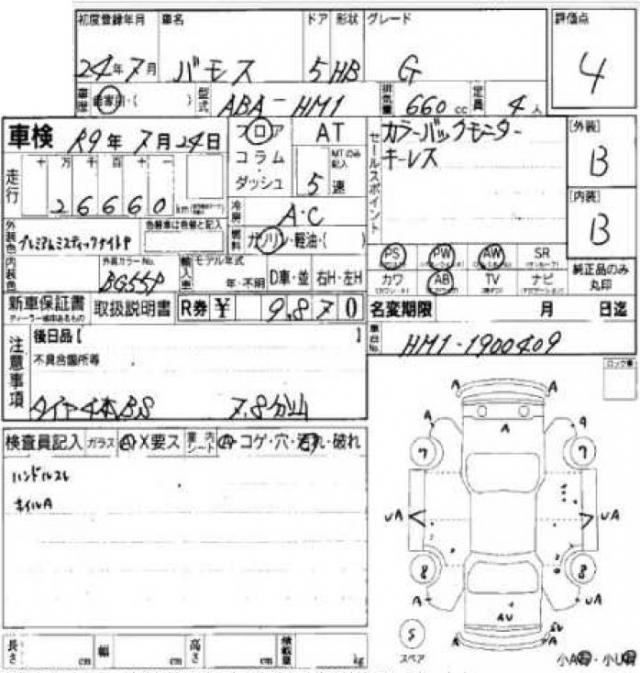 初度登録年月 車名 ドア 形状 グレード 評価点
24年7月 バモス 5 HB G 4
車歴 自家用・( ) 型式 ABA-HM1 排気量 660cc 定員 4人
車検 R9年7月24日 フロア AT セールスポイント カラーバックモニター [外装]
コラム MTのみ記入 キーレス B
走行 十 万 千 百 十 一 ダッシュ 5速
26660 km 冷房 A・C [内装]
外装色 プレミアムミスティックナイトP 色替車は色替と記入 燃料 ガソリン・軽油・( ) B
内装色 外装カラーNo. BG55P 輸入車 モデル年式 年・不明 D車・並 右H・左H
PS PW AW SR
カワ AB TV ナビ 純正品のみ丸印
新車保証書 取扱説明書 R券 ¥ 9,870 名変期限 月 日迄
ディーラー捺印あるもの
注意事項 後日品[ ] 車台No. HM1-1900409
不具合箇所等 ロック車
タイヤ4本BS 7.8分山
検査員記入 ガラス A・X要ス 室内シート A・コゲ・穴・汚れ・破れ
ハンドルスレ
ホイルA
A A
A A A
7 7
UA UA
8 8
A UA
AU
S A A
スペア 小A有・小U有
長さ cm 幅 cm 高さ cm 積載量 kg